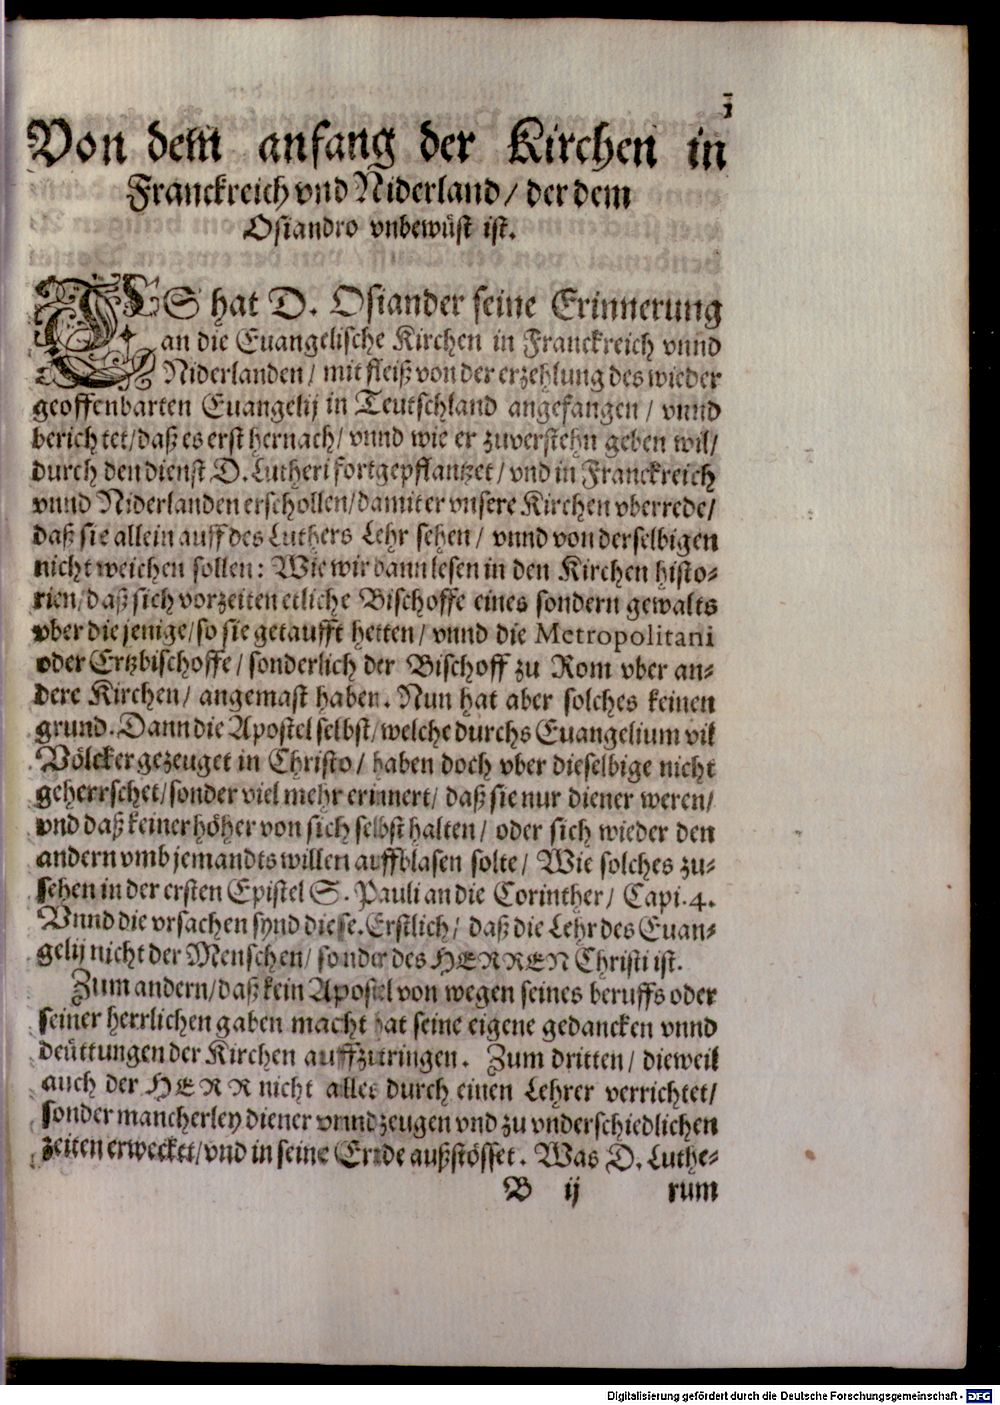 3
Von dem anfang der Kirchen in
Franckreich vnd Niderland/ der dem
Osiandro vnbewüst ist.
ES hat D. Osiander seine Erinnerung
an die Euangelische Kirchen in Franckreich vnnd
Niderlanden/ mit fleiß von der erzehlung des wieder
geoffenbarten Euangelij in Teutschland angefangen/ vnnd
berichtet/ daß es erst hernach/ vnnd wie er zuverstehn geben wil/
durch den dienst D. Lutheri fortgepflantzet/ vnd in Franckreich
vnnd Niderlanden erschollen/ damit er vnsere Kirchen vberrede/
daß sie allein auff des Luthers Lehr sehen/ vnnd von derselbigen
nicht weichen sollen: Wie wir dann lesen in den Kirchen histo-
rien/ daß sich vorzeiten etliche Bischoffe eines sondern gewalts
vber die jenige/ so sie getaufft hetten/ vnnd die Metropolitani
oder Ertzbischoffe/ sonderlich der Bischoff zu Rom vber an-
dere Kirchen/ angemast haben. Nun hat aber solches keinen
grund. Dann die Apostel selbst/ welche durchs Euangelium vil
Völcker gezeuget in Christo/ haben doch vber dieselbige nicht
geherrschet/ sonder viel mehr erinnert/ daß sie nur diener weren/
vnd daß keiner höher von sich selbst halten/ oder sich wieder den
andern vmb jemandts willen auffblasen solte/ Wie solches zu-
sehen in der ersten Epistel S. Pauli an die Corinther/ Capi. 4.
Vnnd die vrsachen synd diese. Erstlich/ daß die Lehr des Euan-
gelij nicht der Menschen/ sonder des HERREN Christi ist.
Zum andern/ daß kein Apostel von wegen seines beruffs oder
seiner herrlichen gaben macht hat seine eigene gedancken vnnd
deüttungen der Kirchen auffzutringen. Zum dritten/ dieweil
auch der HERR nicht alles durch einen Lehrer verrichtet/
sonder mancherley diener vnnd zeugen vnd zu vnderschiedlichen
zeiten erwecket/ vnd in seine Ernde außstösset. Was D. Luthe-
B ij rum
Digitalisierung gefördert durch die Deutsche Forschungsgemeinschaft - DFG